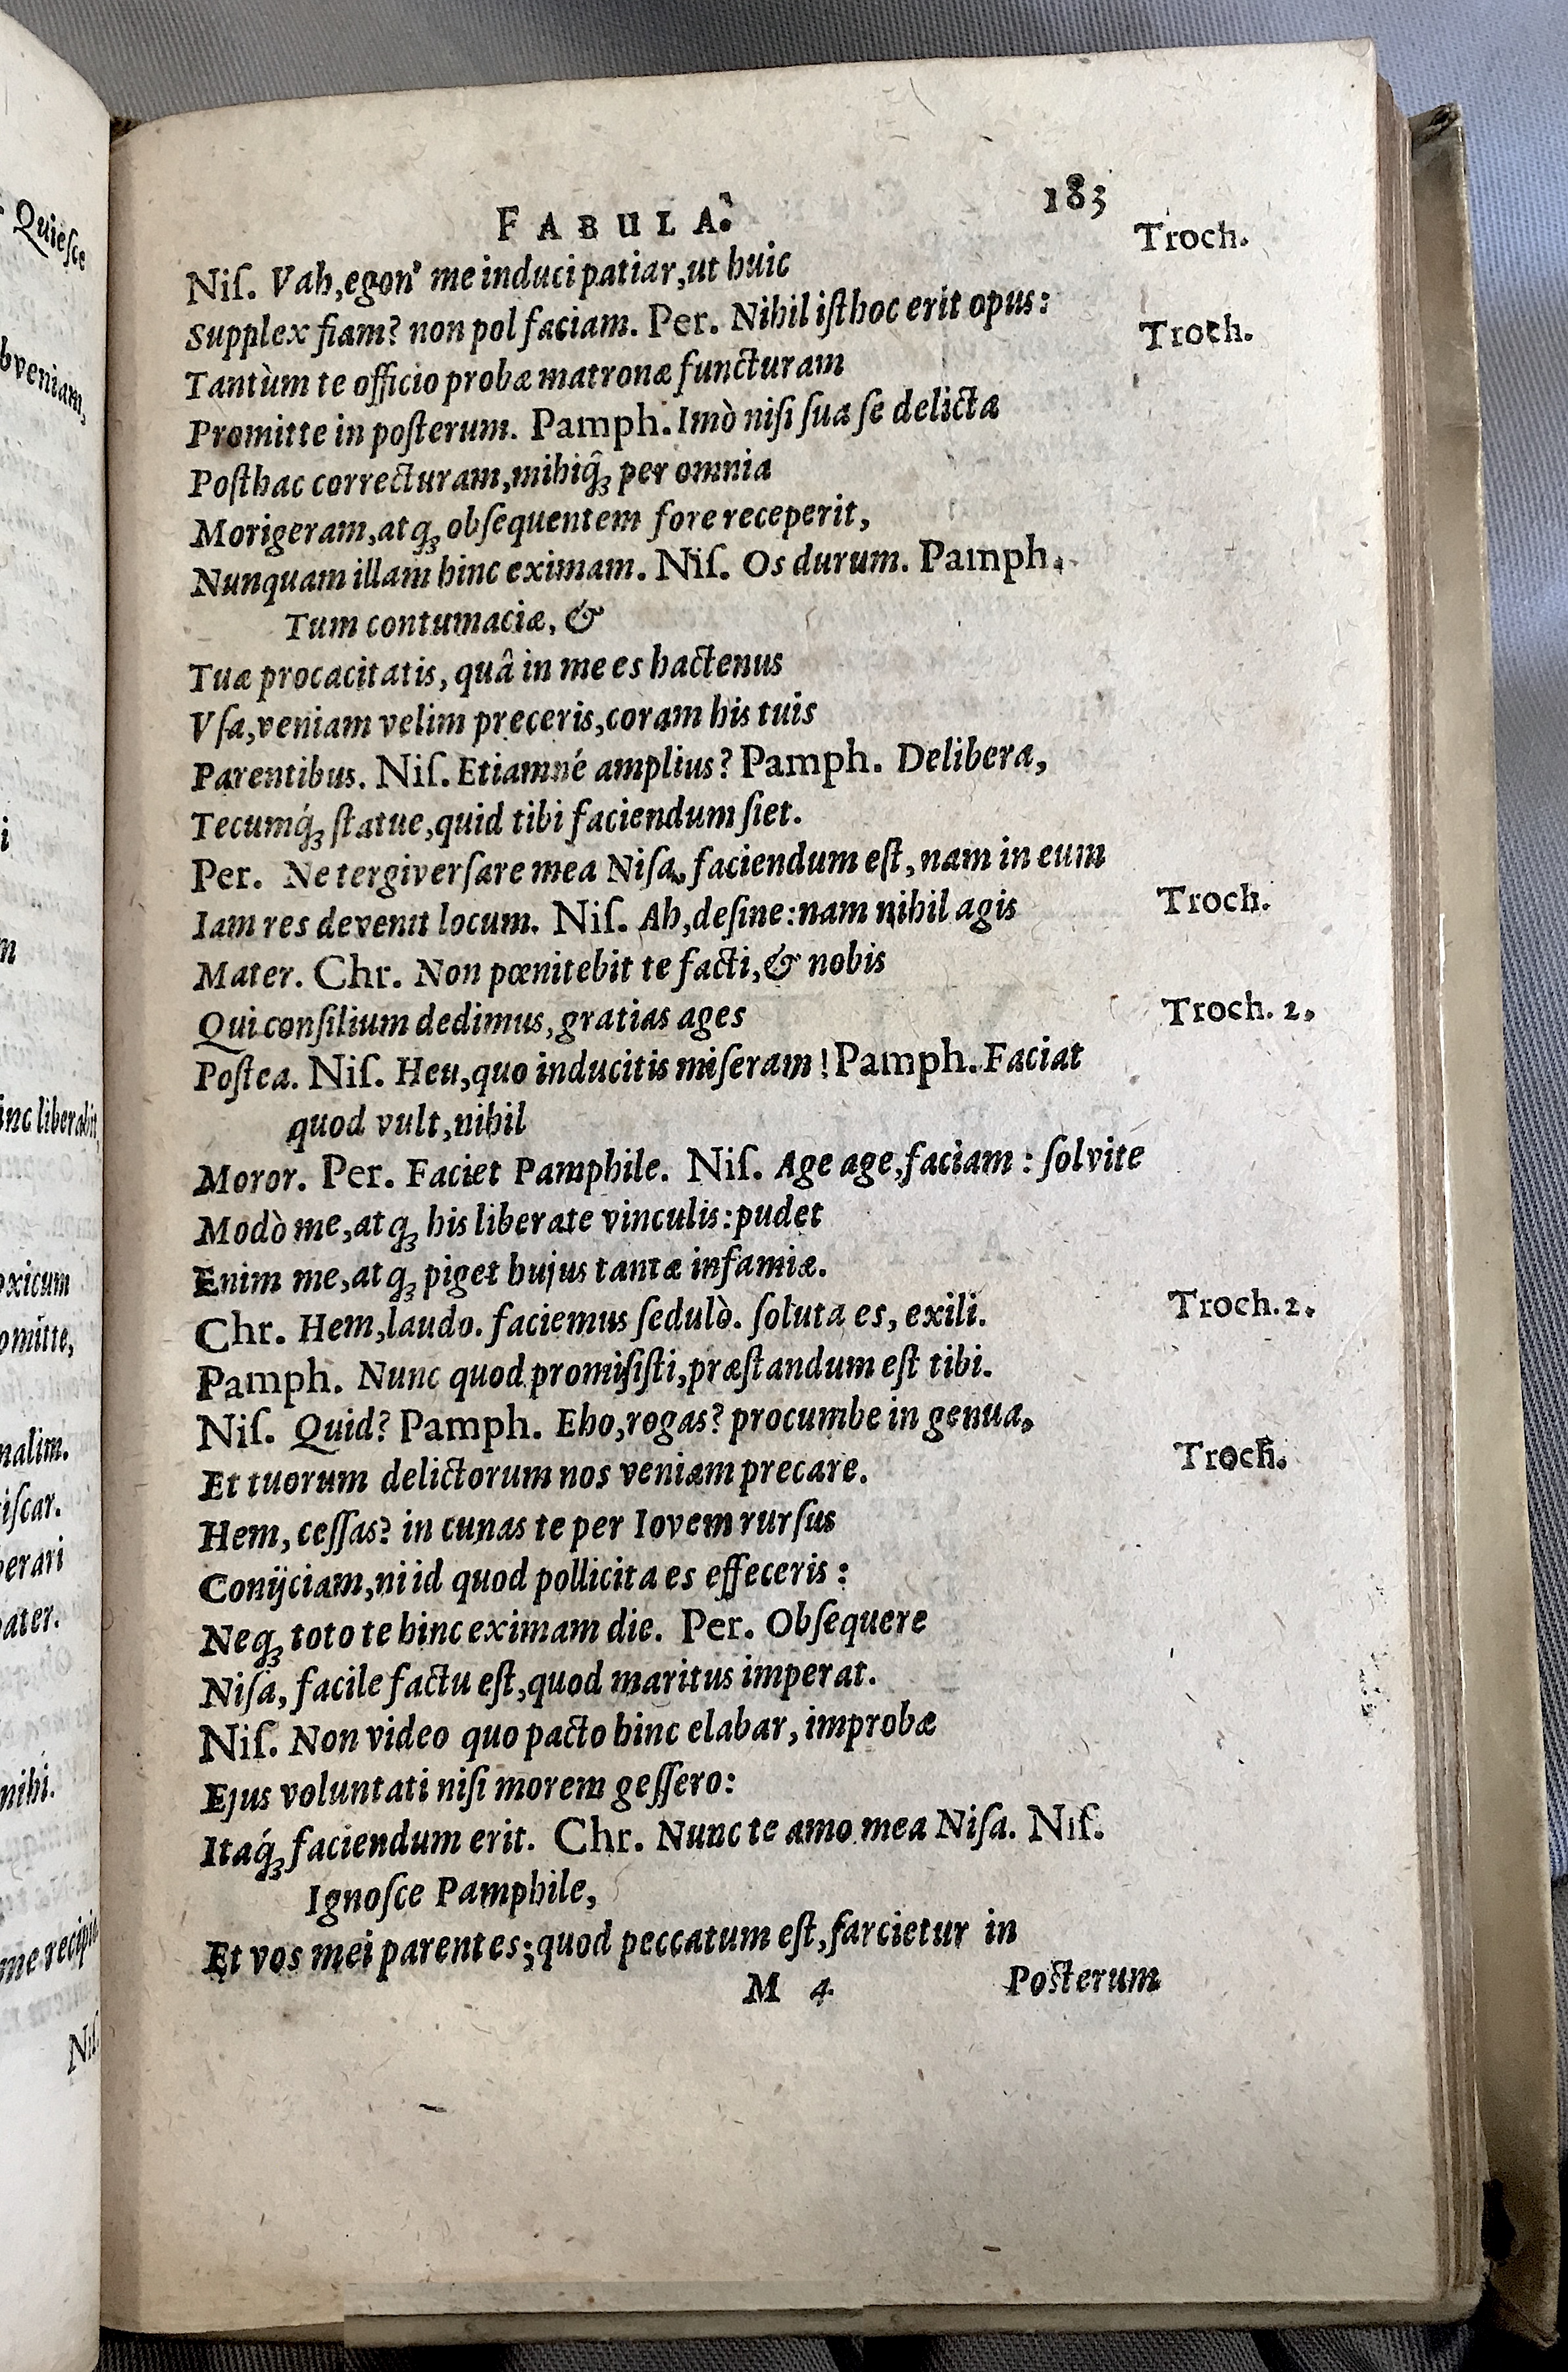 FABULA. 183
Niſ. Vah,egon' me induci patiar,ut huic Troch.
Supplex fiam? non pol faciam. Per. Nihil iſthoc erit opus:
Tantùm te officio probæ matronæ functuram Troch.
Promitte in poſterum. Pamph. Imò niſi ſua ſe delicta
Poſthac correcturam,mihiq́ꝫ per omnia
Morigeram,atqꝫ obſequentem fore receperit,
Nunquam illam hinc eximam. Niſ. Os durum. Pamph.
Tum contumaciæ, &
Tuæ procacitatis, quâ in me es hactenus
Vſa,veniam velim preceris,coram his tuis
Parentibus. Niſ. Etiamné amplius? Pamph. Delibera,
Tecumq́ꝫ ſtatue,quid tibi faciendum ſiet.
Per. Ne tergiverſare mea Niſa, faciendum eſt, nam in eum
Iam res devenit locum. Niſ. Ah,deſine:nam nihil agis Troch.
Mater. Chr. Non pœnitebit te facti,& nobis
Qui conſilium dedimus,gratias ages Troch. 2.
Poſtea. Niſ. Heu,quo inducitis miſeram! Pamph. Faciat
quod vult,nihil
Moror. Per. Faciet Pamphile. Niſ. Age age,faciam: ſolvite
Modò me,atqꝫ his liberate vinculis:pudet
Enim me,atqꝫ piget hujus tantæ infamiæ.
Chr. Hem,laudo. faciemus ſedulò. ſoluta es, exili. Troch. 2.
Pamph. Nunc quod promiſiſti,præſtandum eſt tibi.
Niſ. Quid? Pamph. Eho,rogas? procumbe in genua,
Et tuorum delictorum nos veniam precare. Troch.
Hem, ceſſas? in cunas te per Iovem rurſus
Conijciam,ni id quod pollicita es effeceris:
Neqꝫ toto te hinc eximam die. Per. Obſequere
Niſa, facile factu eſt,quod maritus imperat.
Niſ. Non video quo pacto hinc elabar, improbæ
Ejus voluntati niſi morem geſſero:
Itaq́ꝫ faciendum erit. Chr. Nunc te amo mea Niſa. Niſ.
Ignoſce Pamphile,
Et vos mei parentes;quod peccatum eſt,ſarcietur in
M 4 Poſterum